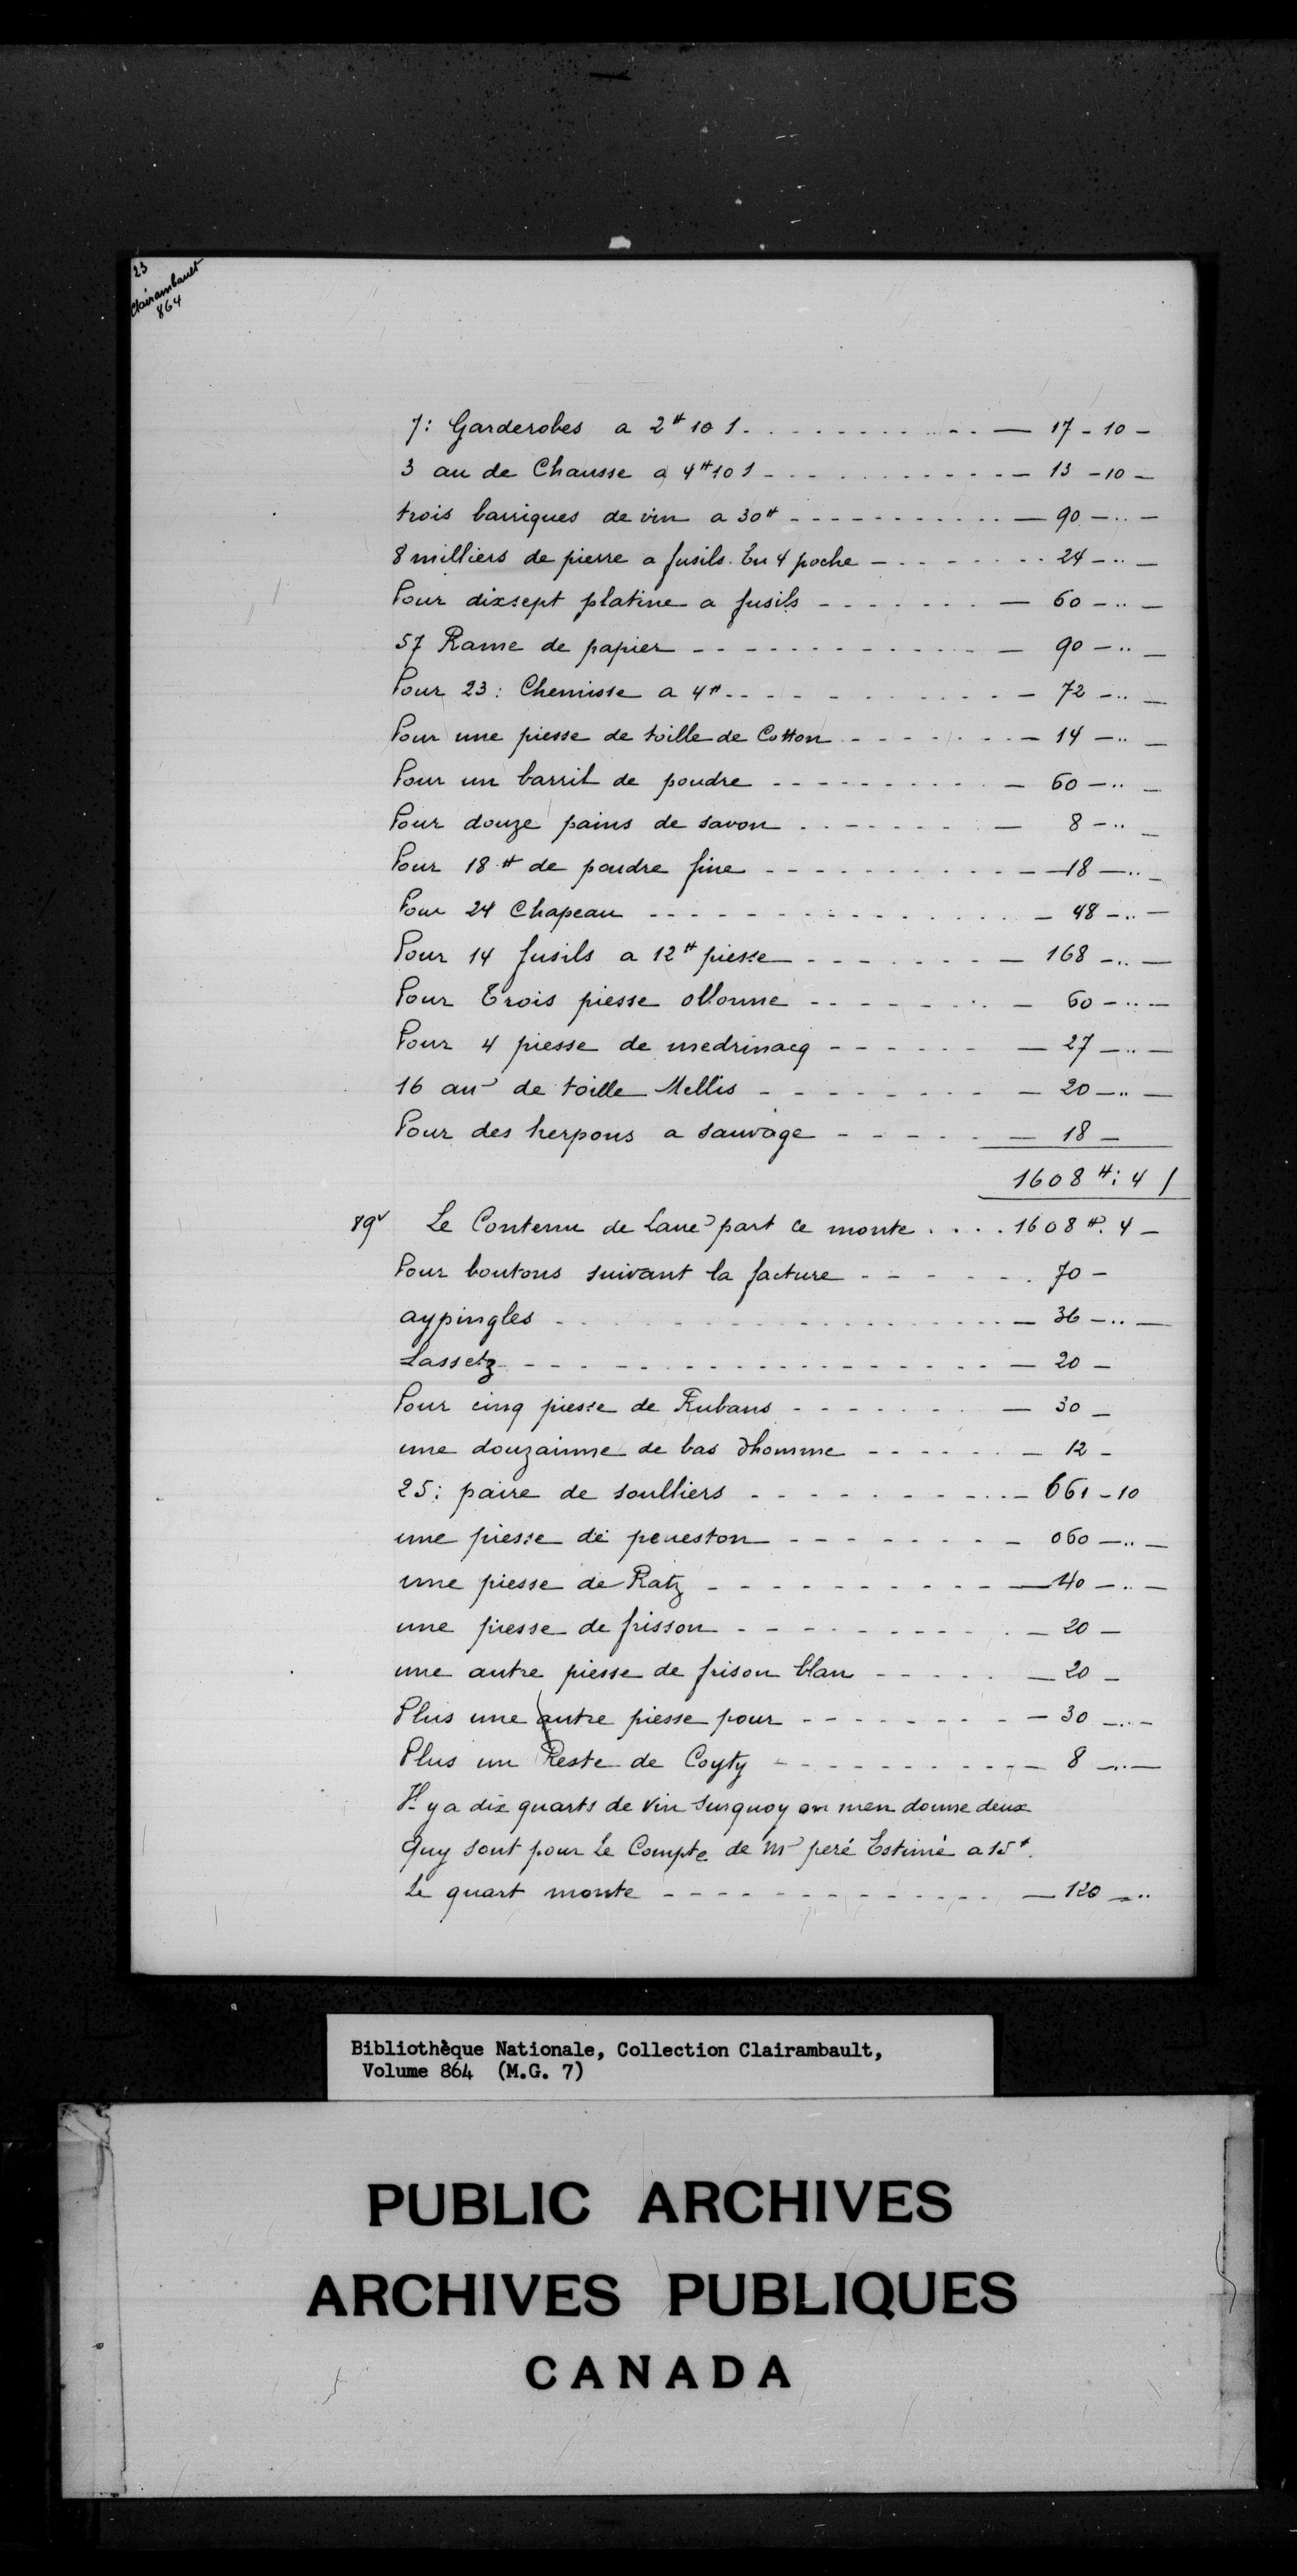 23
Clairambault
864
7: Garderobes a 2# 10 s. - - - - 17 - 10 -
3 au de Chausse a 4# 10 s - - - - 13 - 10 -
trois barriques de vin a 30# - - - - 90 - .. -
8 milliers de pierre a fusils. En 4 poche - - - - 24 - .. -
Pour dixsept platine a fusils - - - - 60 - .. -
57 Rame de papier - - - - 90 - .. -
Pour 23: Chemisse a 4# - - - - 72 - .. -
Pour une piesse de toille de Cotton - - - - 14 - .. -
Pour un barril de poudre - - - - 60 - .. -
Pour douze pains de savon - - - - 8 - .. -
Pour 18 # de poudre fine - - - - 18 - .. -
Pour 24 Chapeau - - - - 48 - .. -
Pour 14 fusils a 12# piesse - - - - 168 - .. -
Pour Trois piesse ollonne - - - - 60 - .. -
Pour 4 piesse de medrinacq - - - - 27 - .. -
16 au de toille Mellis - - - - 20 - .. -
Pour des herpons a sauvage - - - - 18 -
1608 #: 4 s
89v Le Contenu de Laue part ce monte . . . . 1608 #. 4 -
Pour boutons suivant la facture - - - - 70 -
aypingles - - - - 36 - .. -
Lassetz - - - - 20 -
Pour cinq piesse de Rubans - - - - 30 -
une douzainne de bas dhomme - - - - 12 -
25: paire de soulliers - - - - 661 - 10
une piesse de peneston - - - - 060 - .. -
une piesse de Ratz - - - - 40 - .. -
une piesse de frisson - - - - 20 -
une autre piesse de frison blan - - - - 20 -
Plus une autre piesse pour - - - - 30 - .. -
Plus un Reste de Coyty - - - - 8 - .. -
Il y a dix quarts de vin surquoy on men donne deux
quy sont pour Le Compte de Mr peré Estimé a 15#.
Le quart monte - - - - 120 - ..
Bibliothèque Nationale, Collection Clairambault,
Volume 864 (M.G. 7)
PUBLIC ARCHIVES
ARCHIVES PUBLIQUES
CANADA